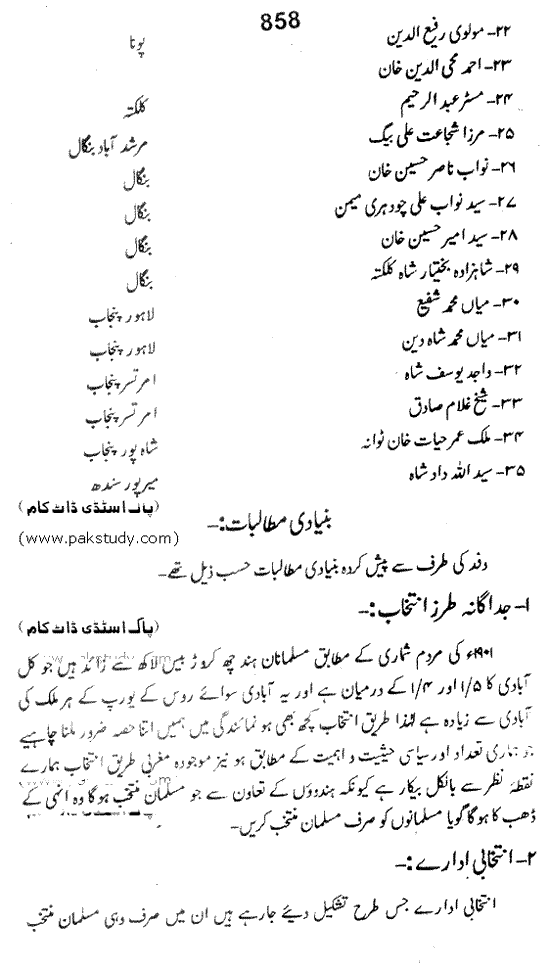 858
۲۲- مولوی رفیع الدین پونا
۲۳- احمد محی الدین خان
۲۴- مسٹر عبد الرحیم کلکتہ
۲۵- مرزا شجاعت علی بیگ مرشد آباد بنگال
۲۶- نواب ناصر حسین خان بنگال
۲۷- سید نواب علی چودھری میمن بنگال
۲۸- سید امیر حسین خان بنگال
۲۹- شاہزادہ بختیار شاہ کلکتہ بنگال
۳۰- میاں محمد شفیع لاہور پنجاب
۳۱- میاں محمد شاہ دین لاہور پنجاب
۳۲- واجد یوسف شاہ امرتسر پنجاب
۳۳- شیخ غلام صادق امرتسر پنجاب
۳۴- ملک عمر حیات خان ٹوانہ شاہ پور پنجاب
۳۵- سید اللہ داد شاہ میرپور سندھ
(پاک اسٹڈی ڈاٹ کام)
بنیادی مطالبات:-
(www.pakstudy.com)
وفد کی طرف سے پیش کردہ بنیادی مطالبات حسب ذیل تھے-
۱- جداگانہ طرز انتخاب:-
(پاک اسٹڈی ڈاٹ کام)
۱۹۰۱ء کی مردم شماری کے مطابق مسلمانان ہند چھ کروڑ بیس لاکھ سے زائد ہیں جو کل
آبادی کا ۱/۵ اور ۱/۴ کے درمیان ہے اور یہ آبادی سوائے روس کے یورپ کے ہر ملک کی
آبادی سے زیادہ ہے لہٰذا طریق انتخاب کچھ بھی ہو نمائندگی میں ہمیں اتنا حصہ ضرور ملنا چاہیے
جو ہماری تعداد اور سیاسی حیثیت و اہمیت کے مطابق ہو نیز موجودہ مغربی طریق انتخاب ہمارے
نقطۂ نظر سے بالکل بیکار ہے کیونکہ ہندوؤں کے تعاون سے جو مسلمان منتخب ہوگا وہ انہی کے
ڈھب کا ہوگا گویا مسلمانوں کو صرف مسلمان منتخب کریں-
۲- انتخابی ادارے:-
انتخابی ادارے جس طرح تشکیل دیئے جارہے ہیں ان میں صرف وہی مسلمان منتخب